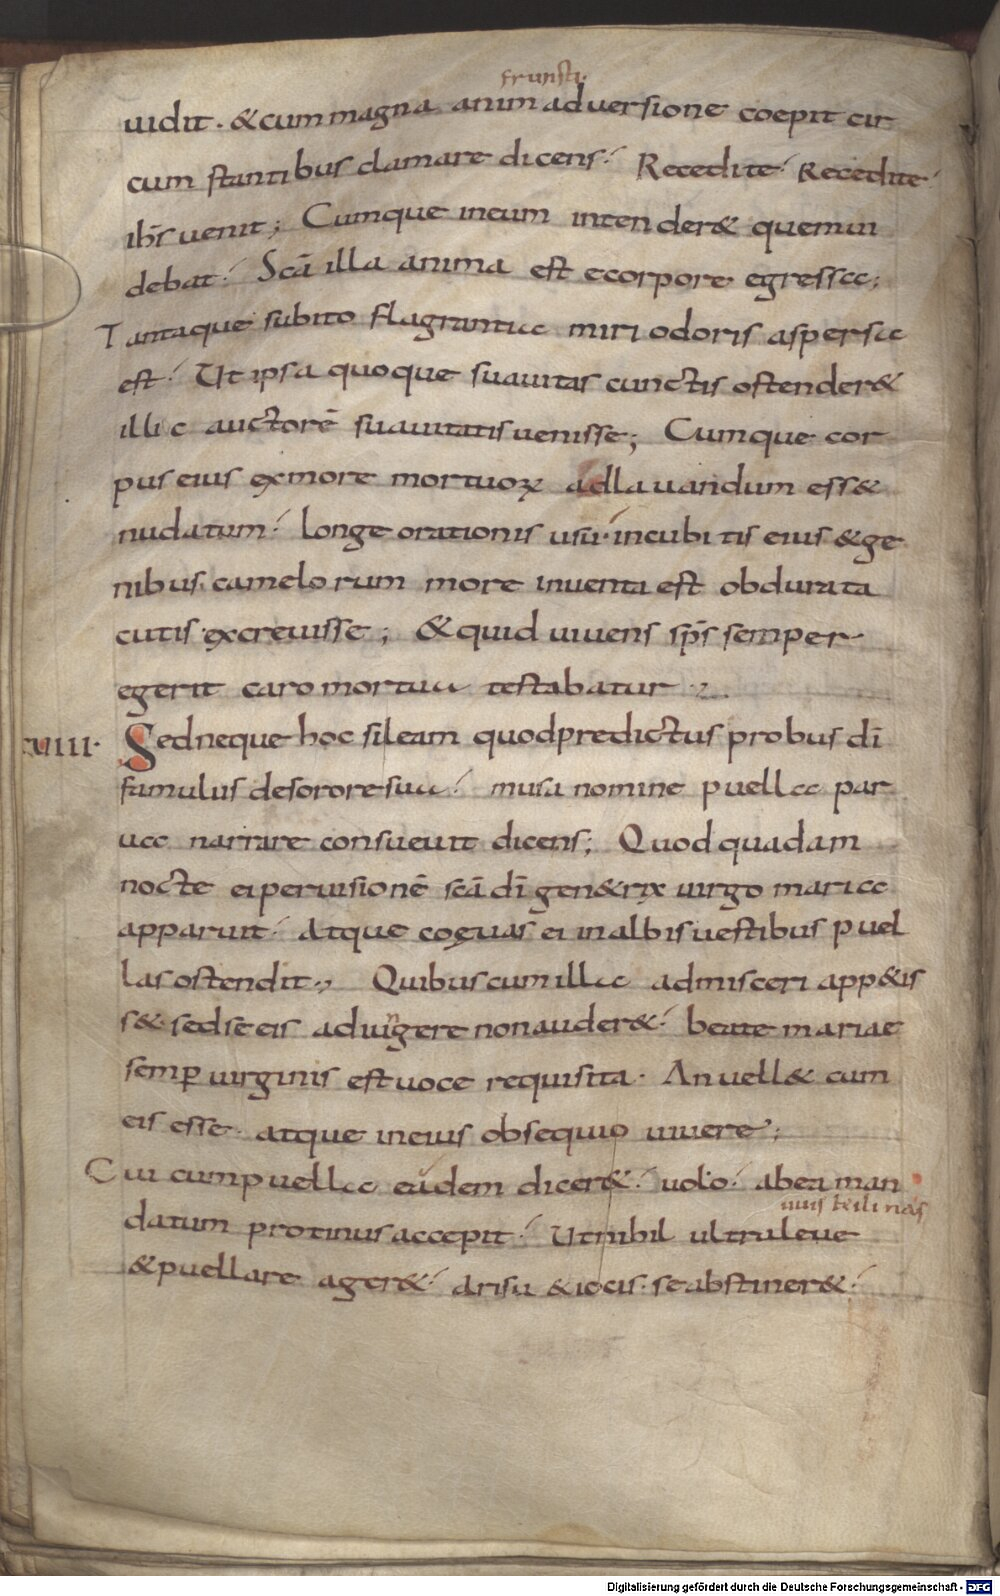 frunsti·
uidit · & cum magna animaduersione coepit cir
cum stantibus clamare dicens · Recedite · Recedite ·
ihs̄ uenit ; Cumque in eum intender& quem ui
debat · Scā illa anima est e corpore egressa ;
Tantaque subito flagrantia miri odoris aspersa
est · Ut ipsa quoque suauitas cunctis ostender&
illic auctorē suauitatis uenisse ; Cumque cor
pus eius ex more mortuoꝝ ad lauandum ess&
nudatum · longe orationis usu · in cubitis eius & ge
nibus camelorum more inuenta est obdurata
cutis excreuisse ; & quid uiuens sps̄ semper
egerit caro mortua testabatur ·,
xviii · Sed neque hoc sileam quod predictus probus dī
famulus de sorore sua · musa nomine puella par
ua narrare consueuit dicens ; Quod quadam
nocte ei per uisionē scā dī gen&rix uirgo maria
apparuit · atque coęuas ei in albis uestibus puel
las ostendit ·, Quibus cum illa admisceri app&is
s& · sed sē eis adiungere non auder& · beate mariae
semꝑ uirginis est uoce requisita · An uell& cum
eis esse · atque in eius obsequio uiuere ;
Cui cum puella eadem dicer& · uolo · ab ea man
datum protinus accepit · Ut nihil ultra leue
& puellare ager& · a risu & iocis · se abstiner& ·
Digitalisierung gefördert durch die Deutsche Forschungsgemeinschaft - DFG